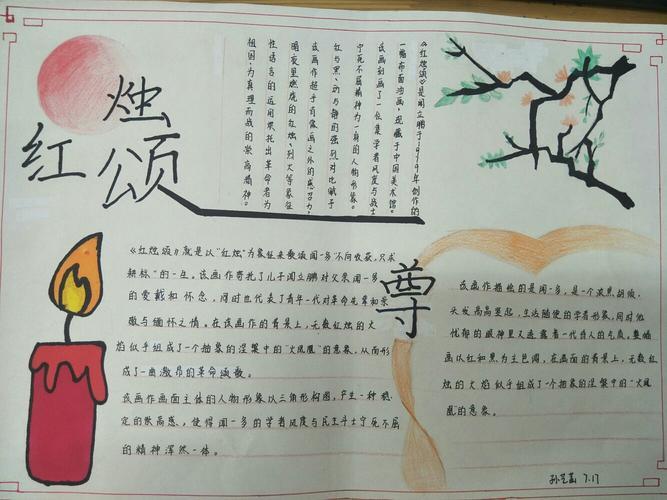 红
烛
颂
《红烛颂》是闻立鹏于1979年创作的
一幅布面油画,现藏于中国美术馆。
该画刻画了一位集学者风度与战士
宁死不屈精神为一身的人物形象。
红与黑、动与静的强烈对比赋予
该画作超乎肖像画之外的感召力,
暗夜里燃烧的红烛、烈火等象征
性语言的运用烘托出革命者为
祖国、为真理而战的崇高精神。
《红烛颂》就是以“红烛”为象征来歌颂闻一多“不问收获,只求
耕耘”的一生。该画作寄托了儿子闻立鹏对父亲闻一多
的爱戴和怀念,同时也代表了青年一代对革命先辈和崇
敬与缅怀之情。在该画作的背景上,无数红烛的火
焰似乎组成了一个抽象的涅槃中的“火凤凰”的意象,从而形
成了一曲激昂的革命颂歌。
该画作画面主体的人物形象以三角形构图,产生一种稳
定的崇高感,使得闻一多的学者风度与民主斗士宁死不屈
的精神浑然一体。
尊
该画作描绘的是闻一多,是一个浓黑胡须,
头发高高竖起,生活随便的学者形象,同时他
忧郁的眼神里又透露着一代诗人的气质。整幅
画以红和黑为主色调,在画面的背景上,无数红
烛的火焰似乎组成了一个抽象的涅槃中的“火凤
凰的意象。
7.17